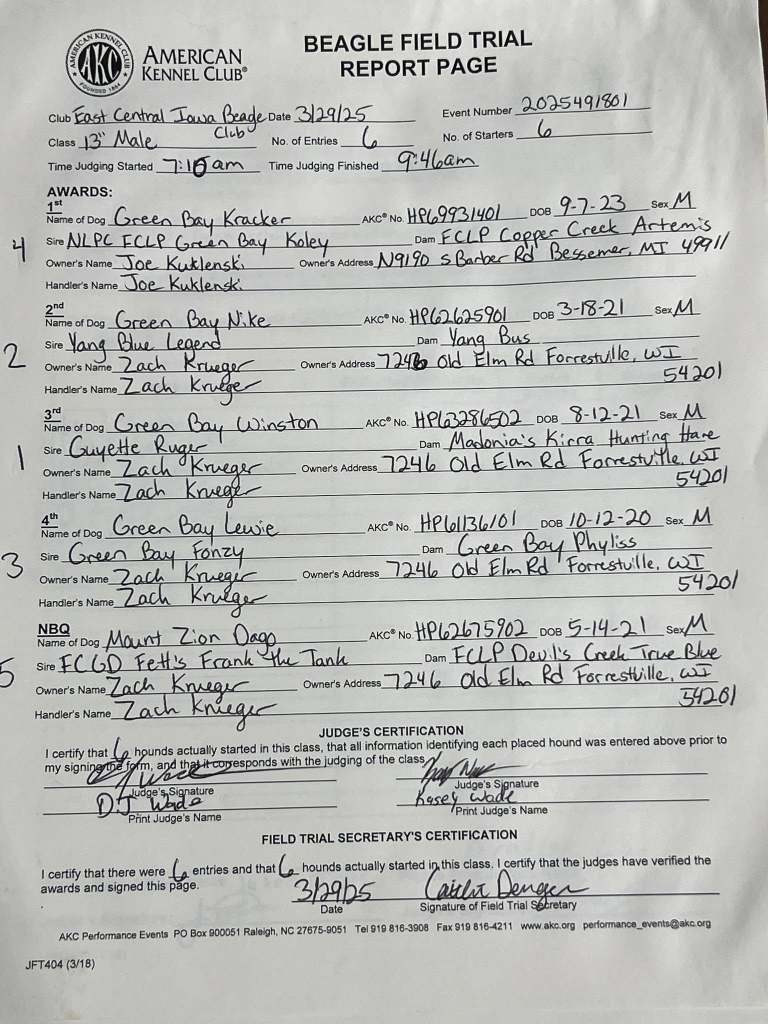 AMERICAN KENNEL CLUB
FOUNDED 1884
AKC
AMERICAN
KENNEL CLUB®
BEAGLE FIELD TRIAL
REPORT PAGE
Club East Central Iowa Beagle Club Date 3/29/25 Event Number 2025491801
Class 13" Male No. of Entries 6 No. of Starters 6
Time Judging Started 7:15 am Time Judging Finished 9:46am
AWARDS:
1st
Name of Dog Green Bay Kracker AKC® No. HP69931401 DOB 9-7-23 Sex M
4 Sire NLPC FCLP Green Bay Koley Dam FCLP Copper Creek Artemis
Owner's Name Joe Kuklenski Owner's Address N9190 S Barber Rd Bessemer, MI 49911
Handler's Name Joe Kuklenski
2nd
Name of Dog Green Bay Nike AKC® No. HP62625901 DOB 3-18-21 Sex M
2 Sire Yang Blue Legend Dam Yang Bus
Owner's Name Zach Krueger Owner's Address 7246 Old Elm Rd Forrestville, WI
Handler's Name Zach Krueger 54201
3rd
Name of Dog Green Bay Winston AKC® No. HP63286502 DOB 8-12-21 Sex M
1 Sire Guyette Ruger Dam Madonia's Kirra Hunting Hare
Owner's Name Zach Krueger Owner's Address 7246 Old Elm Rd Forrestville, WI
Handler's Name Zach Krueger 54201
4th
Name of Dog Green Bay Lewie AKC® No. HP61136101 DOB 10-12-20 Sex M
3 Sire Green Bay Fonzy Dam Green Bay Phyliss
Owner's Name Zach Krueger Owner's Address 7246 Old Elm Rd Forrestville, WI
Handler's Name Zach Krueger 54201
NBQ
Name of Dog Mount Zion Dago AKC® No. HP62675902 DOB 5-14-21 Sex M
5 Sire FCGD Fett's Frank the Tank Dam FCLP Devil's Creek True Blue
Owner's Name Zach Krueger Owner's Address 7246 Old Elm Rd Forrestville, WI
Handler's Name Zach Krueger 54201
JUDGE'S CERTIFICATION
I certify that 6 hounds actually started in this class, that all information identifying each placed hound was entered above prior to
my signing the form, and that it corresponds with the judging of the class.
Judge's Signature Judge's Signature
DJ Wade Kasey Wade
Print Judge's Name Print Judge's Name
FIELD TRIAL SECRETARY'S CERTIFICATION
I certify that there were 6 entries and that 6 hounds actually started in this class. I certify that the judges have verified the
awards and signed this page. 3/29/25
Date Signature of Field Trial Secretary
AKC Performance Events PO Box 900051 Raleigh, NC 27675-9051 Tel 919 816-3908 Fax 919 816-4211 www.akc.org performance_events@akc.org
JFT404 (3/18)